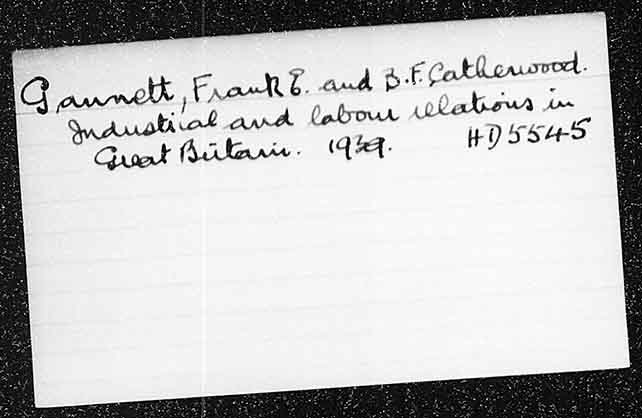 Gannett, Frank E. and B.F. Catherwood.
Industrial and labour relations in
Great Britain. 1939. HD5545